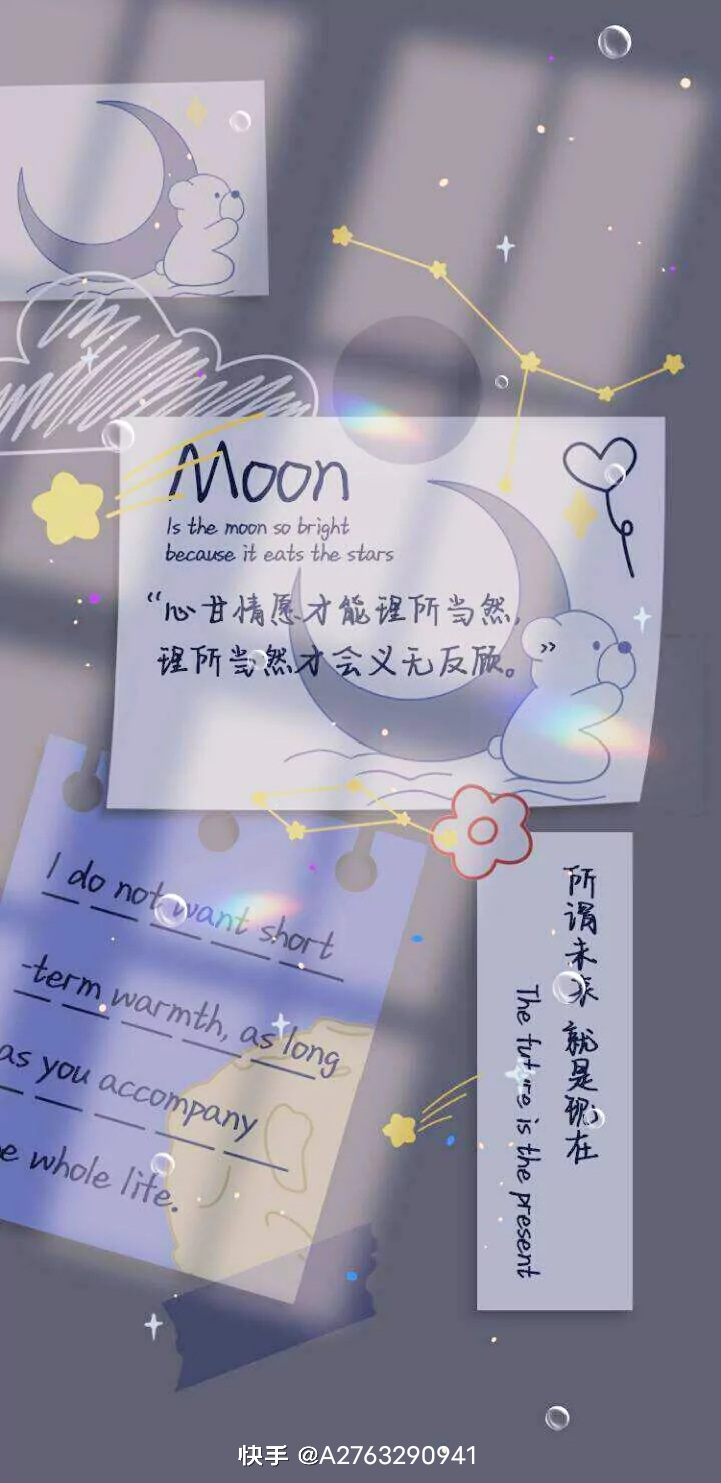 Moon
Is the moon so bright
because it eats the stars
“心甘情愿才能理所当然,
理所当然才会义无反顾。”
I do not want short
-term warmth, as long
as you accompany
e whole life.
所谓未来 就是现在
The future is the present
快手 @A2763290941